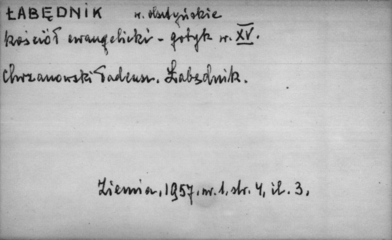 ŁABĘDNIK w. olsztyńskie
kościół ewangelicki - gotyk w. XV.
Chrzanowski Tadeusz. Łabędnik.
Ziemia, 1957, nr. 1, str. 4, il. 3,